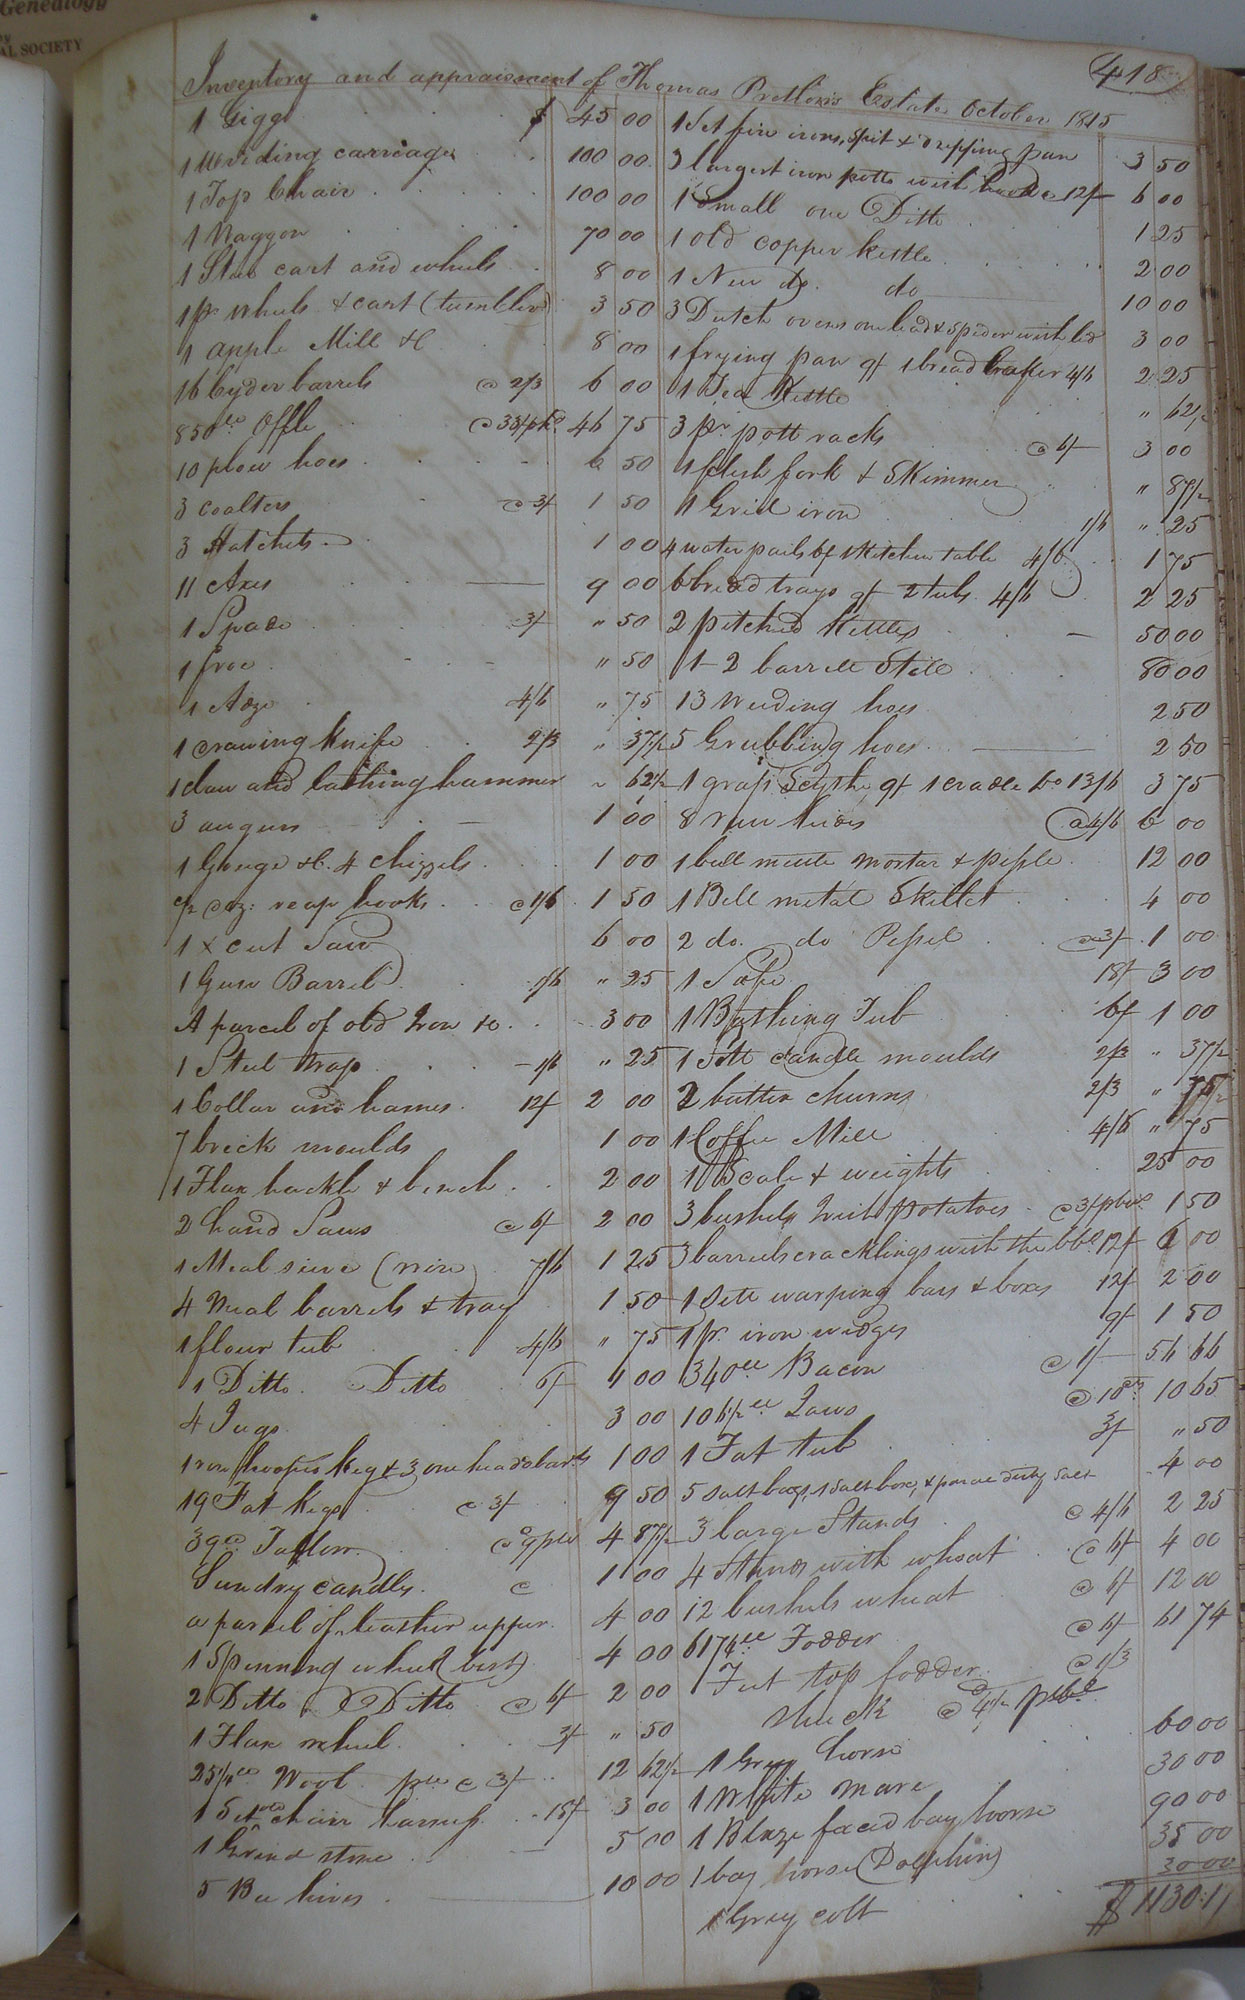 Genealogy
AL SOCIETY
418
Inventory and appraisement of Thomas Estate October 1815
1 Gigg $ 45 00
1 carriage 100 00
1 Top Chair 100 00
1 Waggon 70 00
1 cart and wheels 8 00
1 pr wheels & cart (tumbler) 3 50
1 apple Mill &C 8 00
16 Cyder barrels @ 2/3 6 00
850 46 75
10 plow hoes 50
3 coalters @ 3/ 1 50
3 Hatchets 1 00
11 Axes 9 00
1 Spade 3/ " 50
1 froe " 50
1 Adze 4/6 " 75
1 drawing knife 2/3 " 37 1/2
1 claw and lathing hammer " 62 1/2
3 augurs 1 00
1 Gouge &C. 4 chizzels 1 00
1/2 doz: reap hooks @ 1/6 1 50
1 x cut Saw 6 00
1 Gun Barrel 1/6 " 25
A parcel of old Iron &c 3 00
1 Steel trap 1/6 " 25
1 Collar and hames 12/ 2 00
7 brick moulds 1 00
1 Flax hackle & bench 2 00
2 hand Saws @ 6/ 2 00
1 Meal sieve (wire) 7/6 1 25
4 Meal barrels & tray 1 50
1 flour tub 4/6 " 75
1 Ditto Ditto 6/ 1 00
4 Jugs 3 00
1 iron hooped keg & 3 one head 1 00
19 Fat kegs @ 3/ 9 50
39 Tallow 4 87 1/2
Sundry candles @ 1 00
a parcel of leather upper 4 00
1 Spinning wheel (best) 4 00
2 Ditto Ditto @ 6/ 2 00
1 Flax wheel 3/ " 50
25 1/4 Wool @ 3/ 12 62 1/2
1 Set chair harness 18/ 3 00
1 Grind stone 5 00
5 Bee hives 10 00
1 Set fire irons, Spit & dripping pan 3 50
3 largest iron potts with hooks @ 12/ 6 00
1 Small one Ditto 1 25
1 old copper kettle 2 00
1 New do. do 10 00
3 Dutch ovens one lead & Spider with lid 3 00
1 frying pan 9/ 1 bread 4/6 2 25
1 Tea Kettle " 62 1/2
3 pr pott racks @ 6/ 3 00
1 flesh fork & Skimmer " 87 1/2
1 Grid iron 1/6 " 25
4 water pails 6/ 1 Kitchen table 4/6 1 75
6 bread trays 9/ 2 tubs 4/6 2 25
2 pitched Kettles 50 00
1- 2 barrell Still 80 00
13 Weeding hoes 2 50
5 Grubbing hoes 2 50
1 grass Scythe 9/ 1 cradle Do 13/6 3 75
8 raw hides @ 4/6 6 00
1 bell mettle mortar & pestle 12 00
1 Bell metal Skillet 4 00
2 do. do @ 3/ 1 00
1 Safe 18/ 3 00
1 Tub 6/ 1 00
1 Sett candle moulds 2/3 " 37 1/2
2 butter churns 2/3 " 75
1 Coffee Mill 4/6 " 75
1 Scale & weights 25 00
3 bushels Irish potatoes @ 3/ 1 50
3 barrels cracklings with the bbl 12/ 6 00
1 Sett warping bars & boxes 12/ 2 00
1 pr. iron wedges 9/ 1 50
340 Bacon @ 1/ 56 66
106 1/2 Jaws @ 10 65
1 Fat tub 3/ " 50
5 salt bags, 1 salt box, & dirty salt 4 00
3 large Stands @ 4/6 2 25
4 Stands with wheat @ 6/ 4 00
12 bushels wheat @ 6/ 12 00
6174 Fodder @ 6/ 61 74
Feet top fodder @ 1/3
Shuck
1 Grey horse 60 00
1 White mare 30 00
1 Blaze faced bay horse 90 00
1 bay horse (Dolphin) 35 00
1 Grey colt 30 00
$ 1130.11